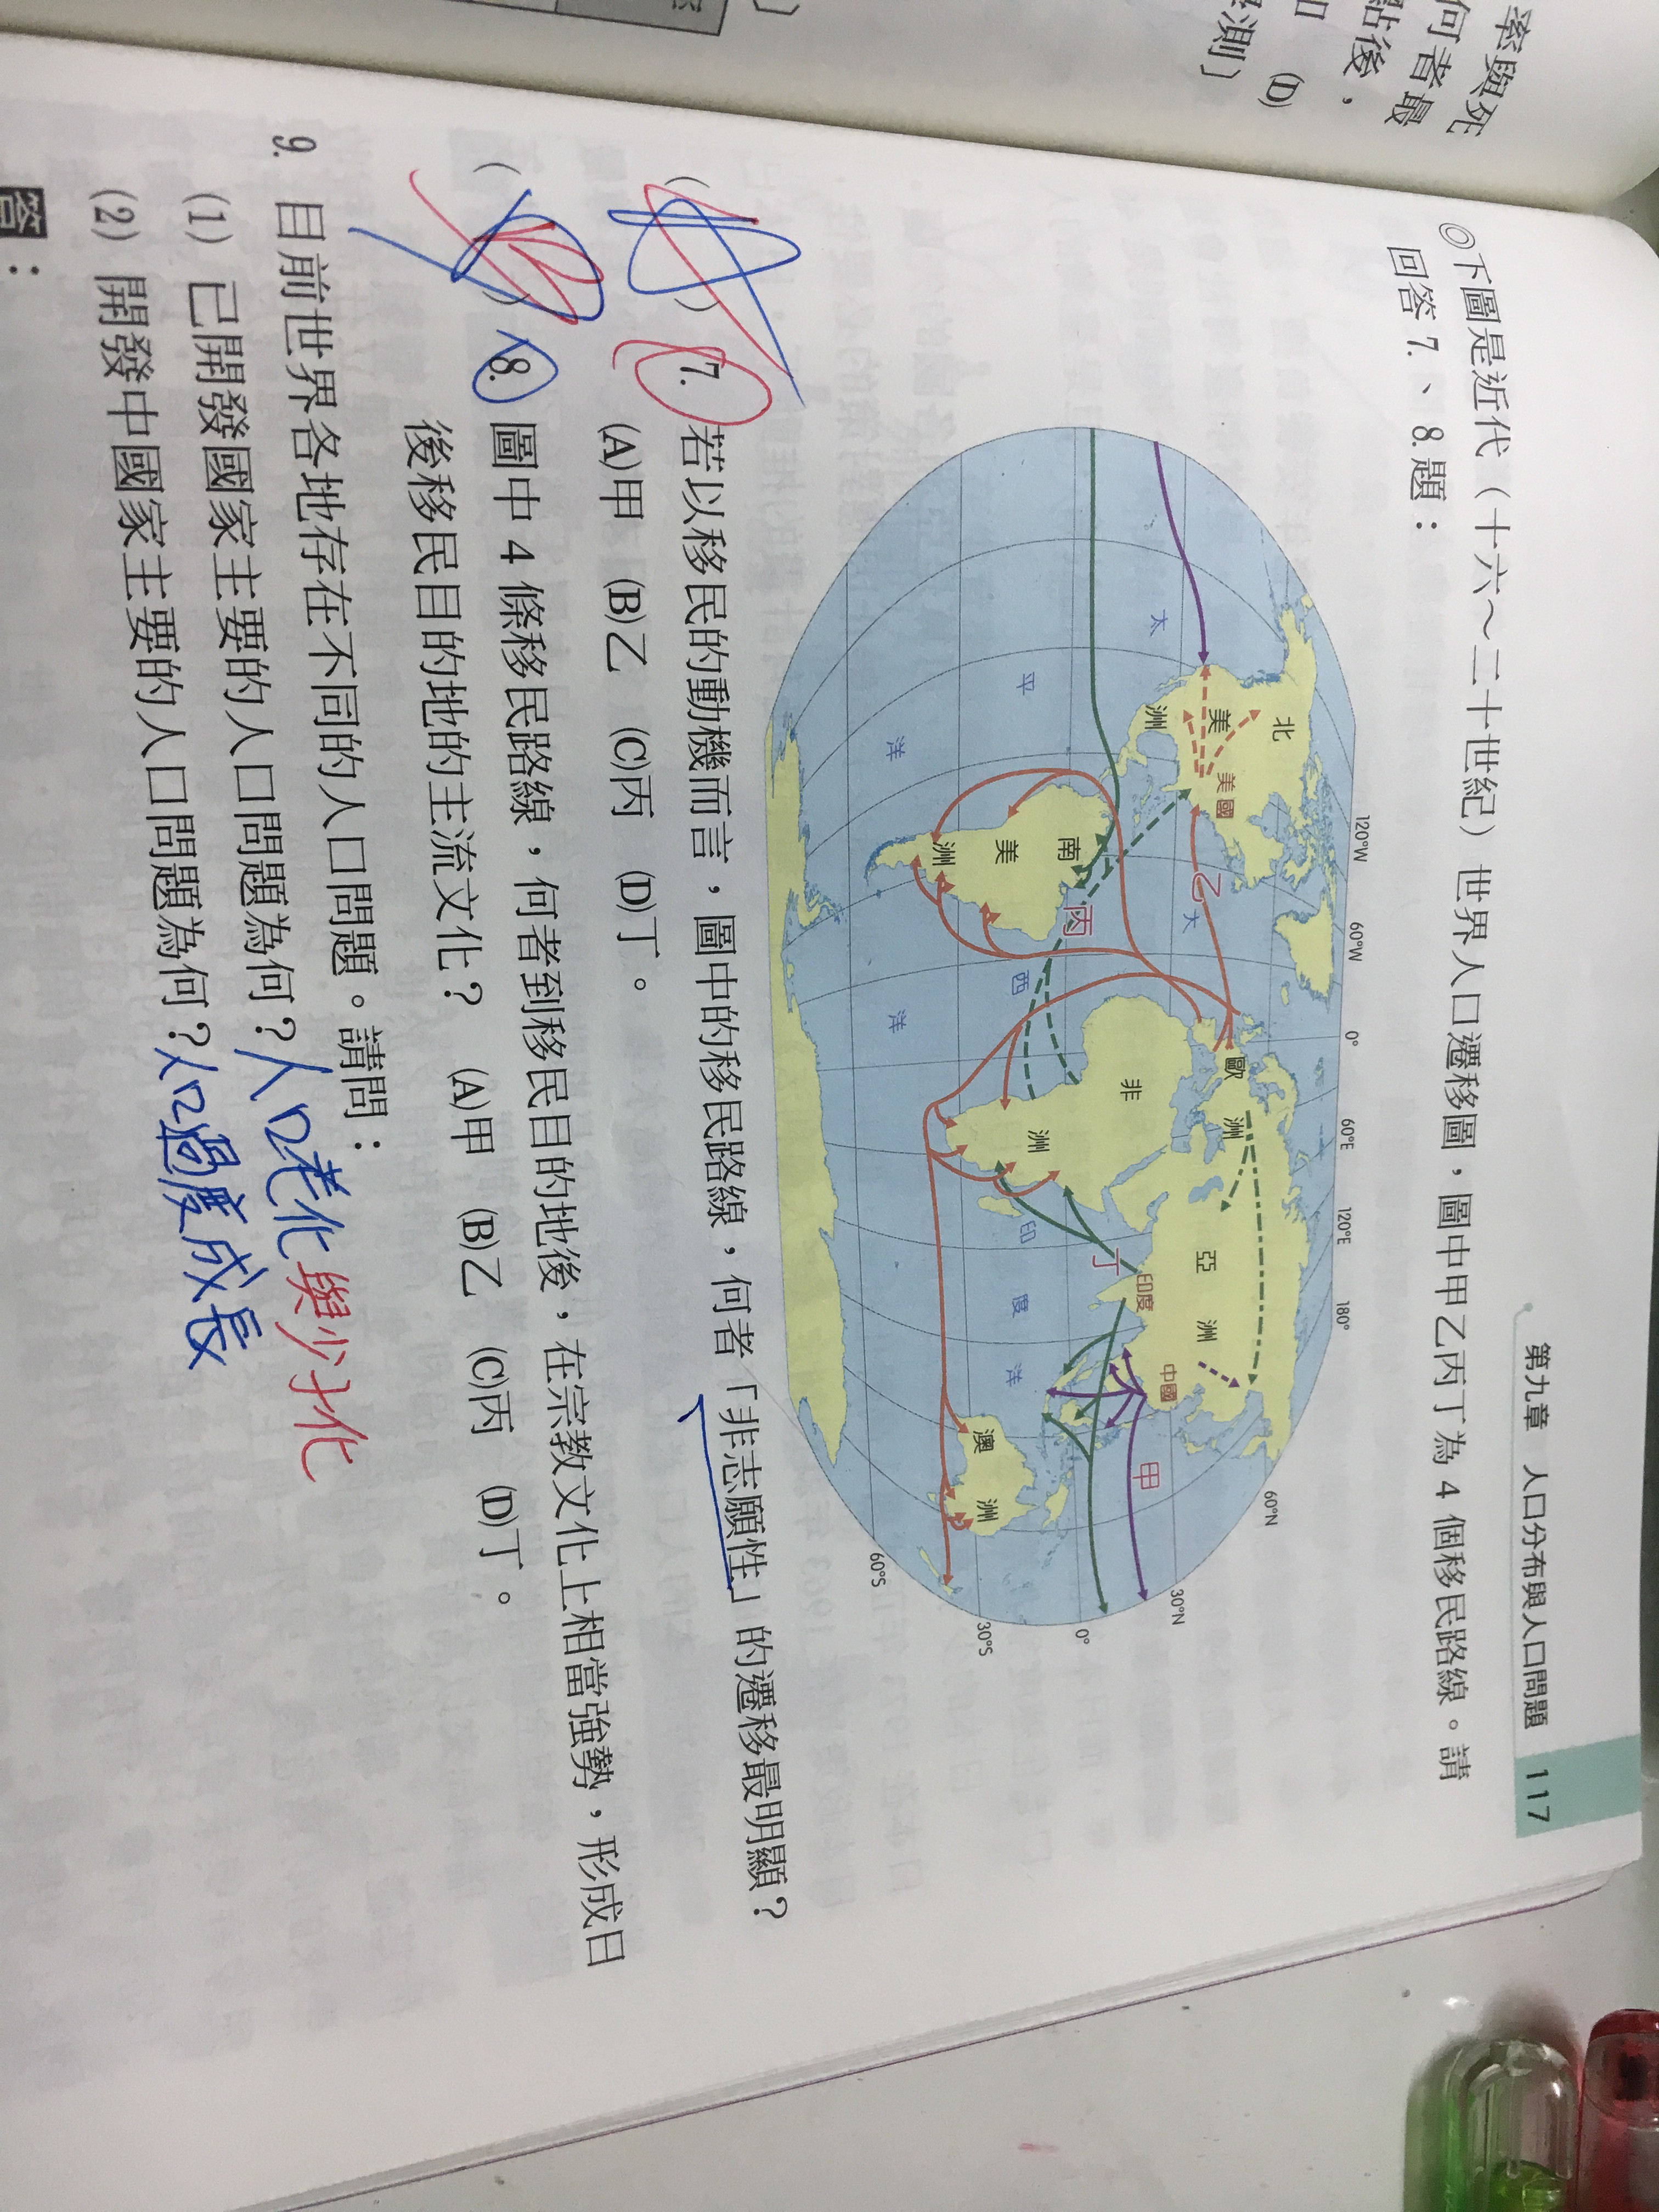 率與死
何者最
點後，
(D)
學測〕
第九章　人口分布與人口問題　117
◎下圖是近代（十六～二十世紀）世界人口遷移圖，圖中甲乙丙丁為 4 個移民路線。請
回答 7.、8.題：
120°W 60°W 0° 60°E 120°E 180°
60°N
30°N
0°
30°S
60°S
北
美
洲
美國
太
平
洋
南
美
洲
乙
大
西
洋
丙
歐
洲
非
洲
亞
洲
丁
印度
印
度
洋
中國
甲
澳
洲
( ) 7. 若以移民的動機而言，圖中的移民路線，何者「非志願性」的遷移最明顯？
(A)甲　(B)乙　(C)丙　(D)丁。
( ) 8. 圖中 4 條移民路線，何者到移民目的地後，在宗教文化上相當強勢，形成日
後移民目的地的主流文化？　(A)甲　(B)乙　(C)丙　(D)丁。
9. 目前世界各地存在不同的人口問題。請問：
(1) 已開發國家主要的人口問題為何？人口老化與少子化
(2) 開發中國家主要的人口問題為何？人口過度成長
答：